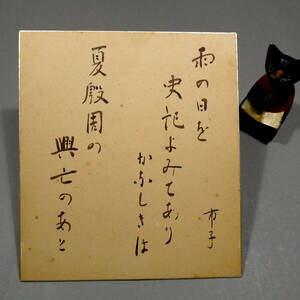 雨の日を
史記よみてあり
かなしきは
夏殷周の
興亡のあと
市子